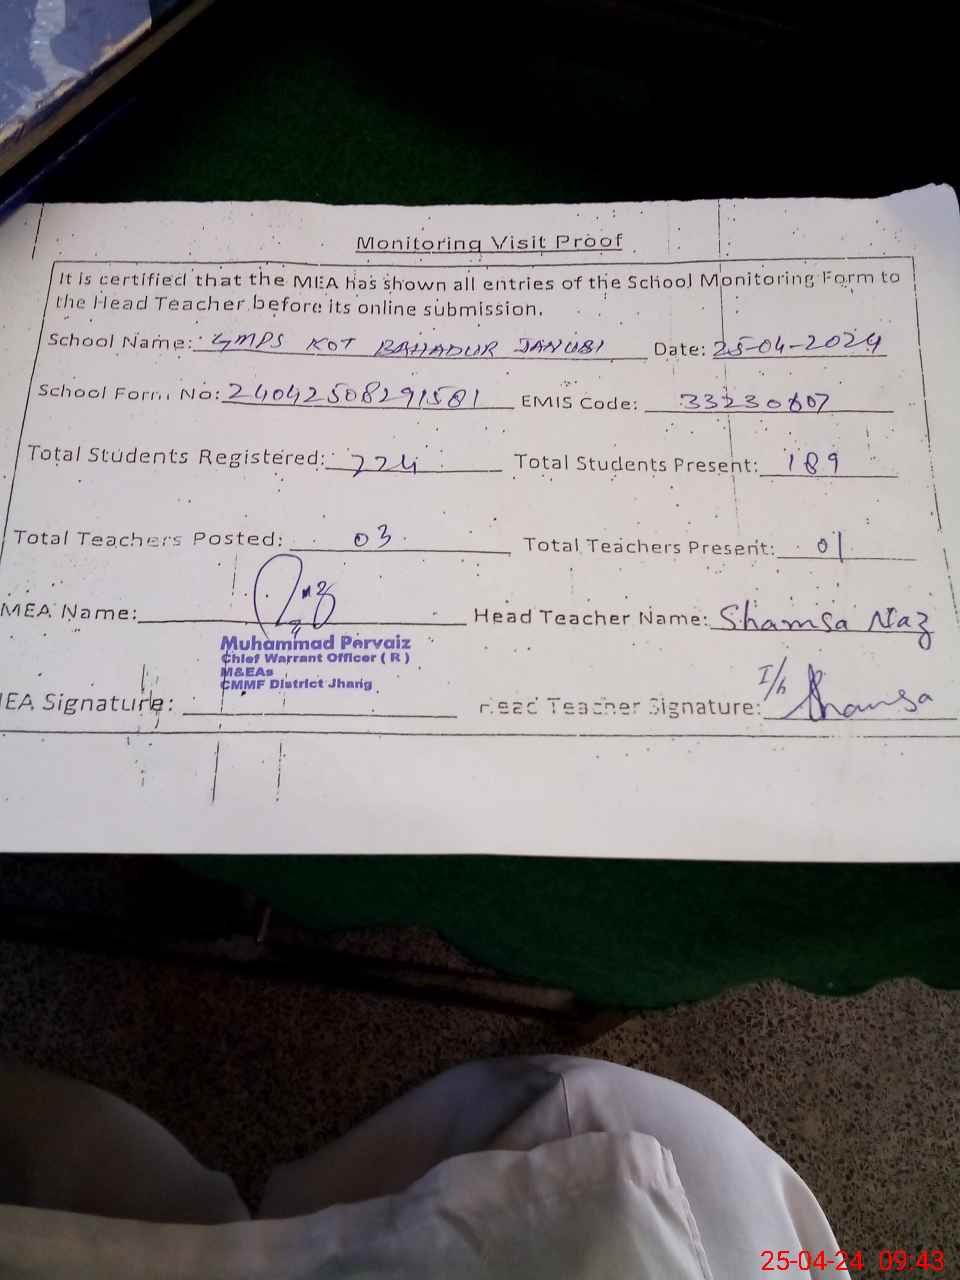 Monitoring Visit Proof
It is certified that the MEA has shown all entries of the School Monitoring Form to
the Head Teacher before its online submission.
School Name: GMPS KOT BAHADUR JANUBI Date: 25-04-2024
School Form No: 24042508291581 EMIS Code: 33230607
Total Students Registered: 224 Total Students Present: 189
Total Teachers Posted: 03 Total Teachers Present: 01
MEA Name: Head Teacher Name: Shamsa Niaz
Muhammad Pervaiz
Chief Warrant Officer ( R )
M&EAs
CMMF District Jhang
IEA Signature: Head Teacher Signature: I/h Shamsa
25-04-24 09:43